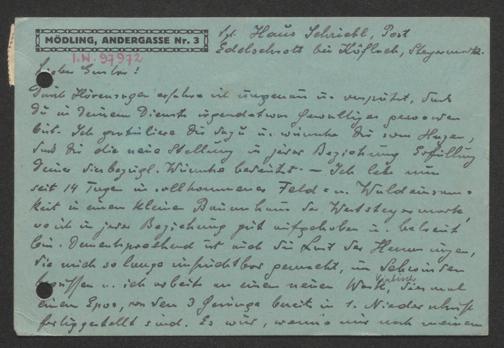 MÖDLING, ANDERGASSE Nr. 3
I.N. 97972
Haus Schriebl, Post
Edelschrott bei Köflach, Steyermark.
Lieber Gustav!
Durch Hörensagen erfahre ich ungenau u. verspätet, daß
du in deinem Dienst irgendetwas Gewaltiger geworden
bist. Ich gratuliere dir dazu u. wünsche dir vom Herzen,
daß dir die neue Stellung in jeder Beziehung Erfüllung
deiner diesbezügl. Wünsche bedeutet. – Ich lebe nun
seit 14 Tagen in vollkommener Feld- u. Waldeinsam-
keit in einem kleinen Bauernhaus der Weststeyermark,
wo ich in jeder Beziehung gut aufgehoben u. betreut
bin. Dementsprechend ist auch die Last der Hemmungen,
die mich so lange unfruchtbar gemacht, im Schwinden
begriffen u. ich arbeite an einem neuen Werk, diesmal
einem Epos, von dem 3 Gesänge bereits in 1. Niederschrift
fertiggestellt sind. Es wäre, wenn mir noch meinen